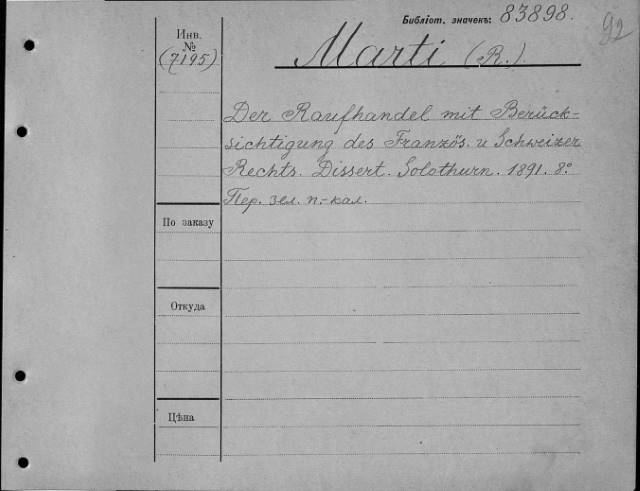 Библіот. значекъ: 83898.
92
Инв.
№
(7195)
Marti (R.).
Der Raufhandel mit Berück-
sichtigung des Französ. u Schweizer
Rechts. Dissert. Solothurn. 1891. 8º
Пер. зел. п.-кал.
По заказу
Откуда
Цѣна